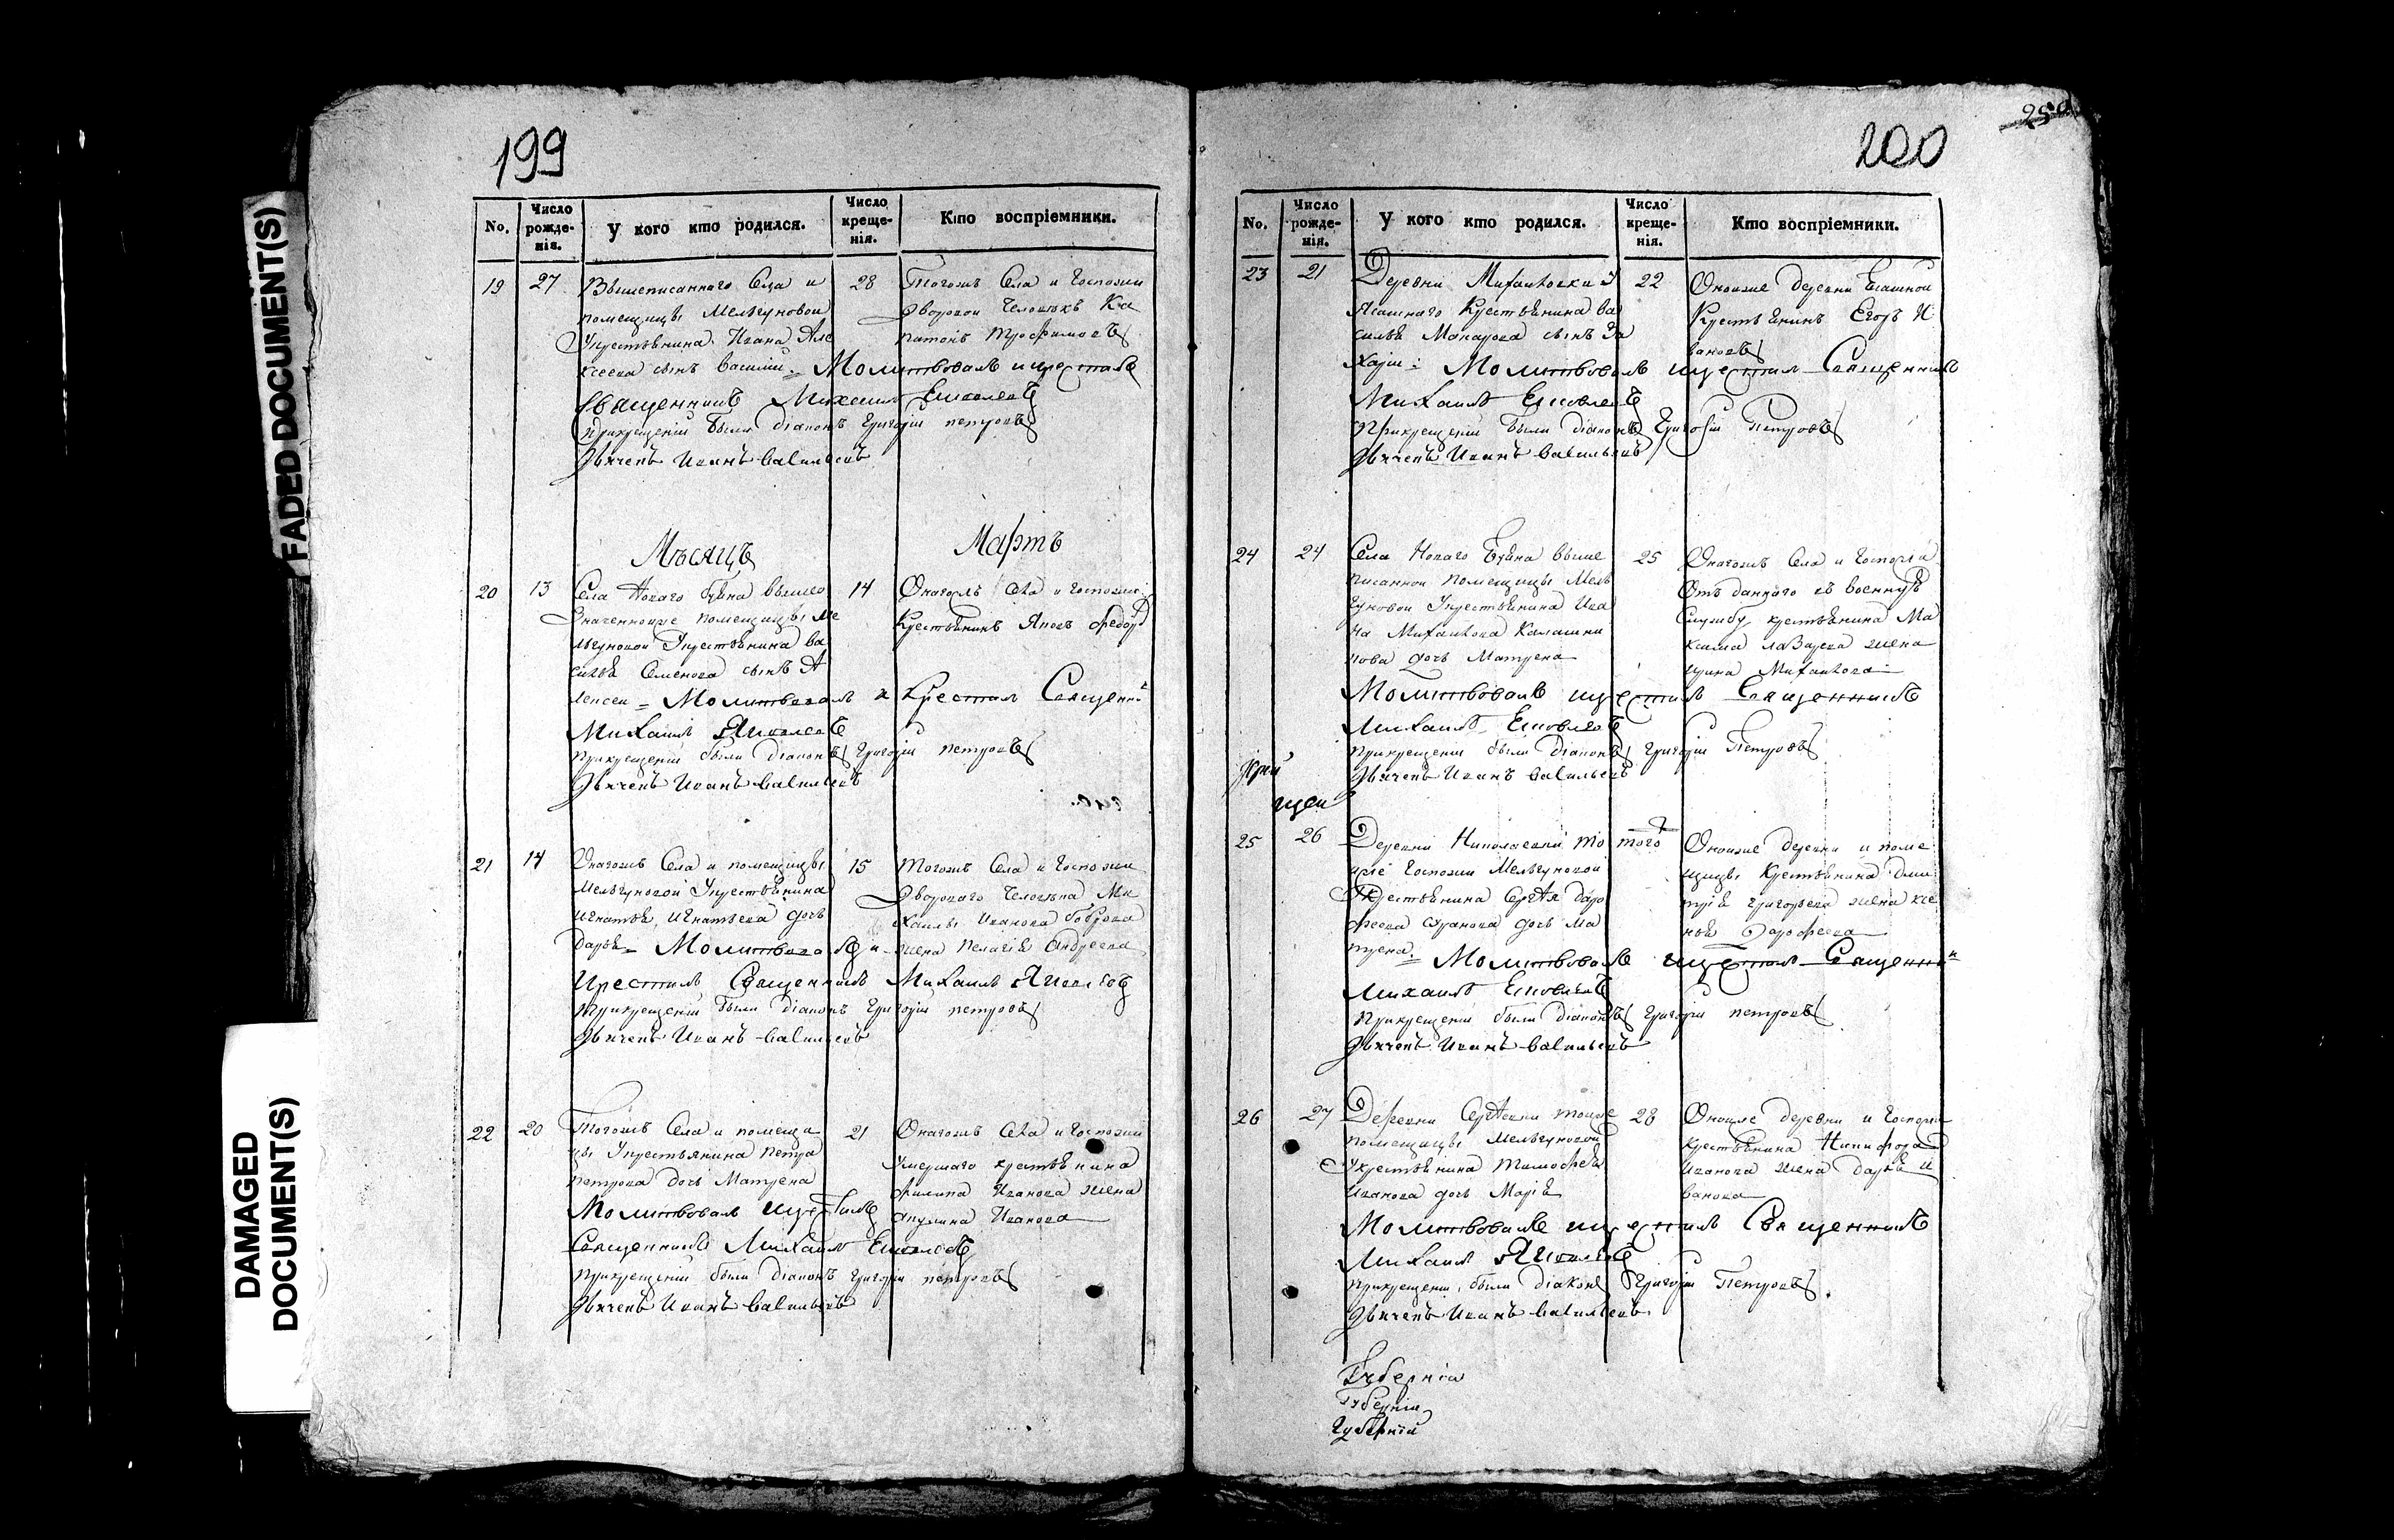 FADED DOCUMENT(S)
DAMAGED
DOCUMENT(S)
199
No.
Число рожде- нія.
У кого кто родился.
Число креще- нія.
Кто воспріемники.
19 27
Вышеписаннаго Села и
помещицы Мельгуновой
Укрестьянина Ивана Але
ксеева сынъ василій. Молитвовалъ и крестилъ
священникъ Михаилъ Яковлевъ
Прикрещеніи были діаконъ григорій петровъ
Дьячекъ Иванъ Васильевъ
28
Тогожъ Села и Госпожи
Дворовой Человѣкъ Ка
питонъ Трофимовъ
Мѣсяцъ
Мартъ
20 13
Села Новаго вышео
значенноиже помещицы Ме
льгуновой Укрестьянина ва
силья Семенова сынъ А
лексеи = Молитвовалъ и Крестил Священни
Михаилъ Яковлевъ
прикрещеніи были діаконъ григоріи петровъ
Дьячекъ Иванъ Васильевъ
14
Онагожъ Села и госпожи
Крестьянинъ Яковъ Федор
21 14
Онагожъ Села и помещицы
Мельгуновой Укрестьянина
Игнатья Игнатьева дочь
Дарья = Молитвовалъ и
крестилъ Священникъ Михаилъ Яковлевъ
Прикрещеніи были діаконъ григоріи петровъ
Дьячекъ Иванъ Васильевъ
15
Тогожъ Села и Госпожи
Двороваго Человека Ми
хаилы Иванова Боброва
жена Пелагія Андреева
22 20
Тогожъ Села и помещи
цы Укрестьянина петра
петрова дочь Матрена
Молитвовалъ икрестилъ
Священникъ Михаилъ Яковлевъ
прикрещеніи были діаконъ григоріи петровъ
Дьячекъ Иванъ Васильевъ
21
Онагожъ Села и Госпожи
Умершаго крестьянина
филипа Иванова жена
акулина Иванова
200
No.
Число рожде- нія.
У кого кто родился.
Число креще- нія.
Кто воспріемники.
23 21
Деревни Михаиловки У
Ясашнаго Крестьянина ва
силья Макарова сынъ За
харіи: Молитвовалъ икрестил Священникъ
Михаилъ Яковлевъ
Прикрещеніи были діаконъ Григоріи Петровъ
Дьячекъ Иванъ Васильевъ
22
Оноиже деревни Ясашной
Крестьянинъ Егоръ И
вановъ
24 24
Села Новаго выше
писанной помещицы Мель
гуновой Укрестьянина Ива
на Михаилова Калашни
кова дочь Матрена
Молитвовалъ икрестилъ Священникъ
Михаилъ Яковлевъ
прикрещеніи были діаконъ григоріи Петровъ
Дьячекъ Иванъ Васильевъ
25
Онагожъ Села и Госпожи
Отъ даннаго въ военную
Службу крестьянина Ма
ксима лазарева жена
ирина Михаилова
25 26
Деревни Николаевки то
иже Госпожи Мельгуновой
Укрестьянина Сергея доро
феева дочь Ма
трена. Молитвовалъ икрестил Священни
Михаилъ Яковлевъ
прикрещеніи были діаконъ григоріи петровъ
Дьячекъ Иванъ Васильевъ
того
Оноиже деревни и поме
щицы Крестьянина дми
трія григорьева жена ксе
нья Дорофеева
26 27
Деревни Сергеевки тоиже
помещицы Мельгуновой
Укрестьянина Тимофея
Иванова дочь Марія
Молитвовалъ икрестилъ Священникъ
Михаилъ Яковлевъ
прикрещеніи были діаконъ Григоріи Петровъ
Дьячекъ Иванъ Васильевъ
28
Оноиже деревни и Госпожи
крестьянина Никифора
Иванова жена дарья И
ванова
Губернія
Губерніи
Губерніи